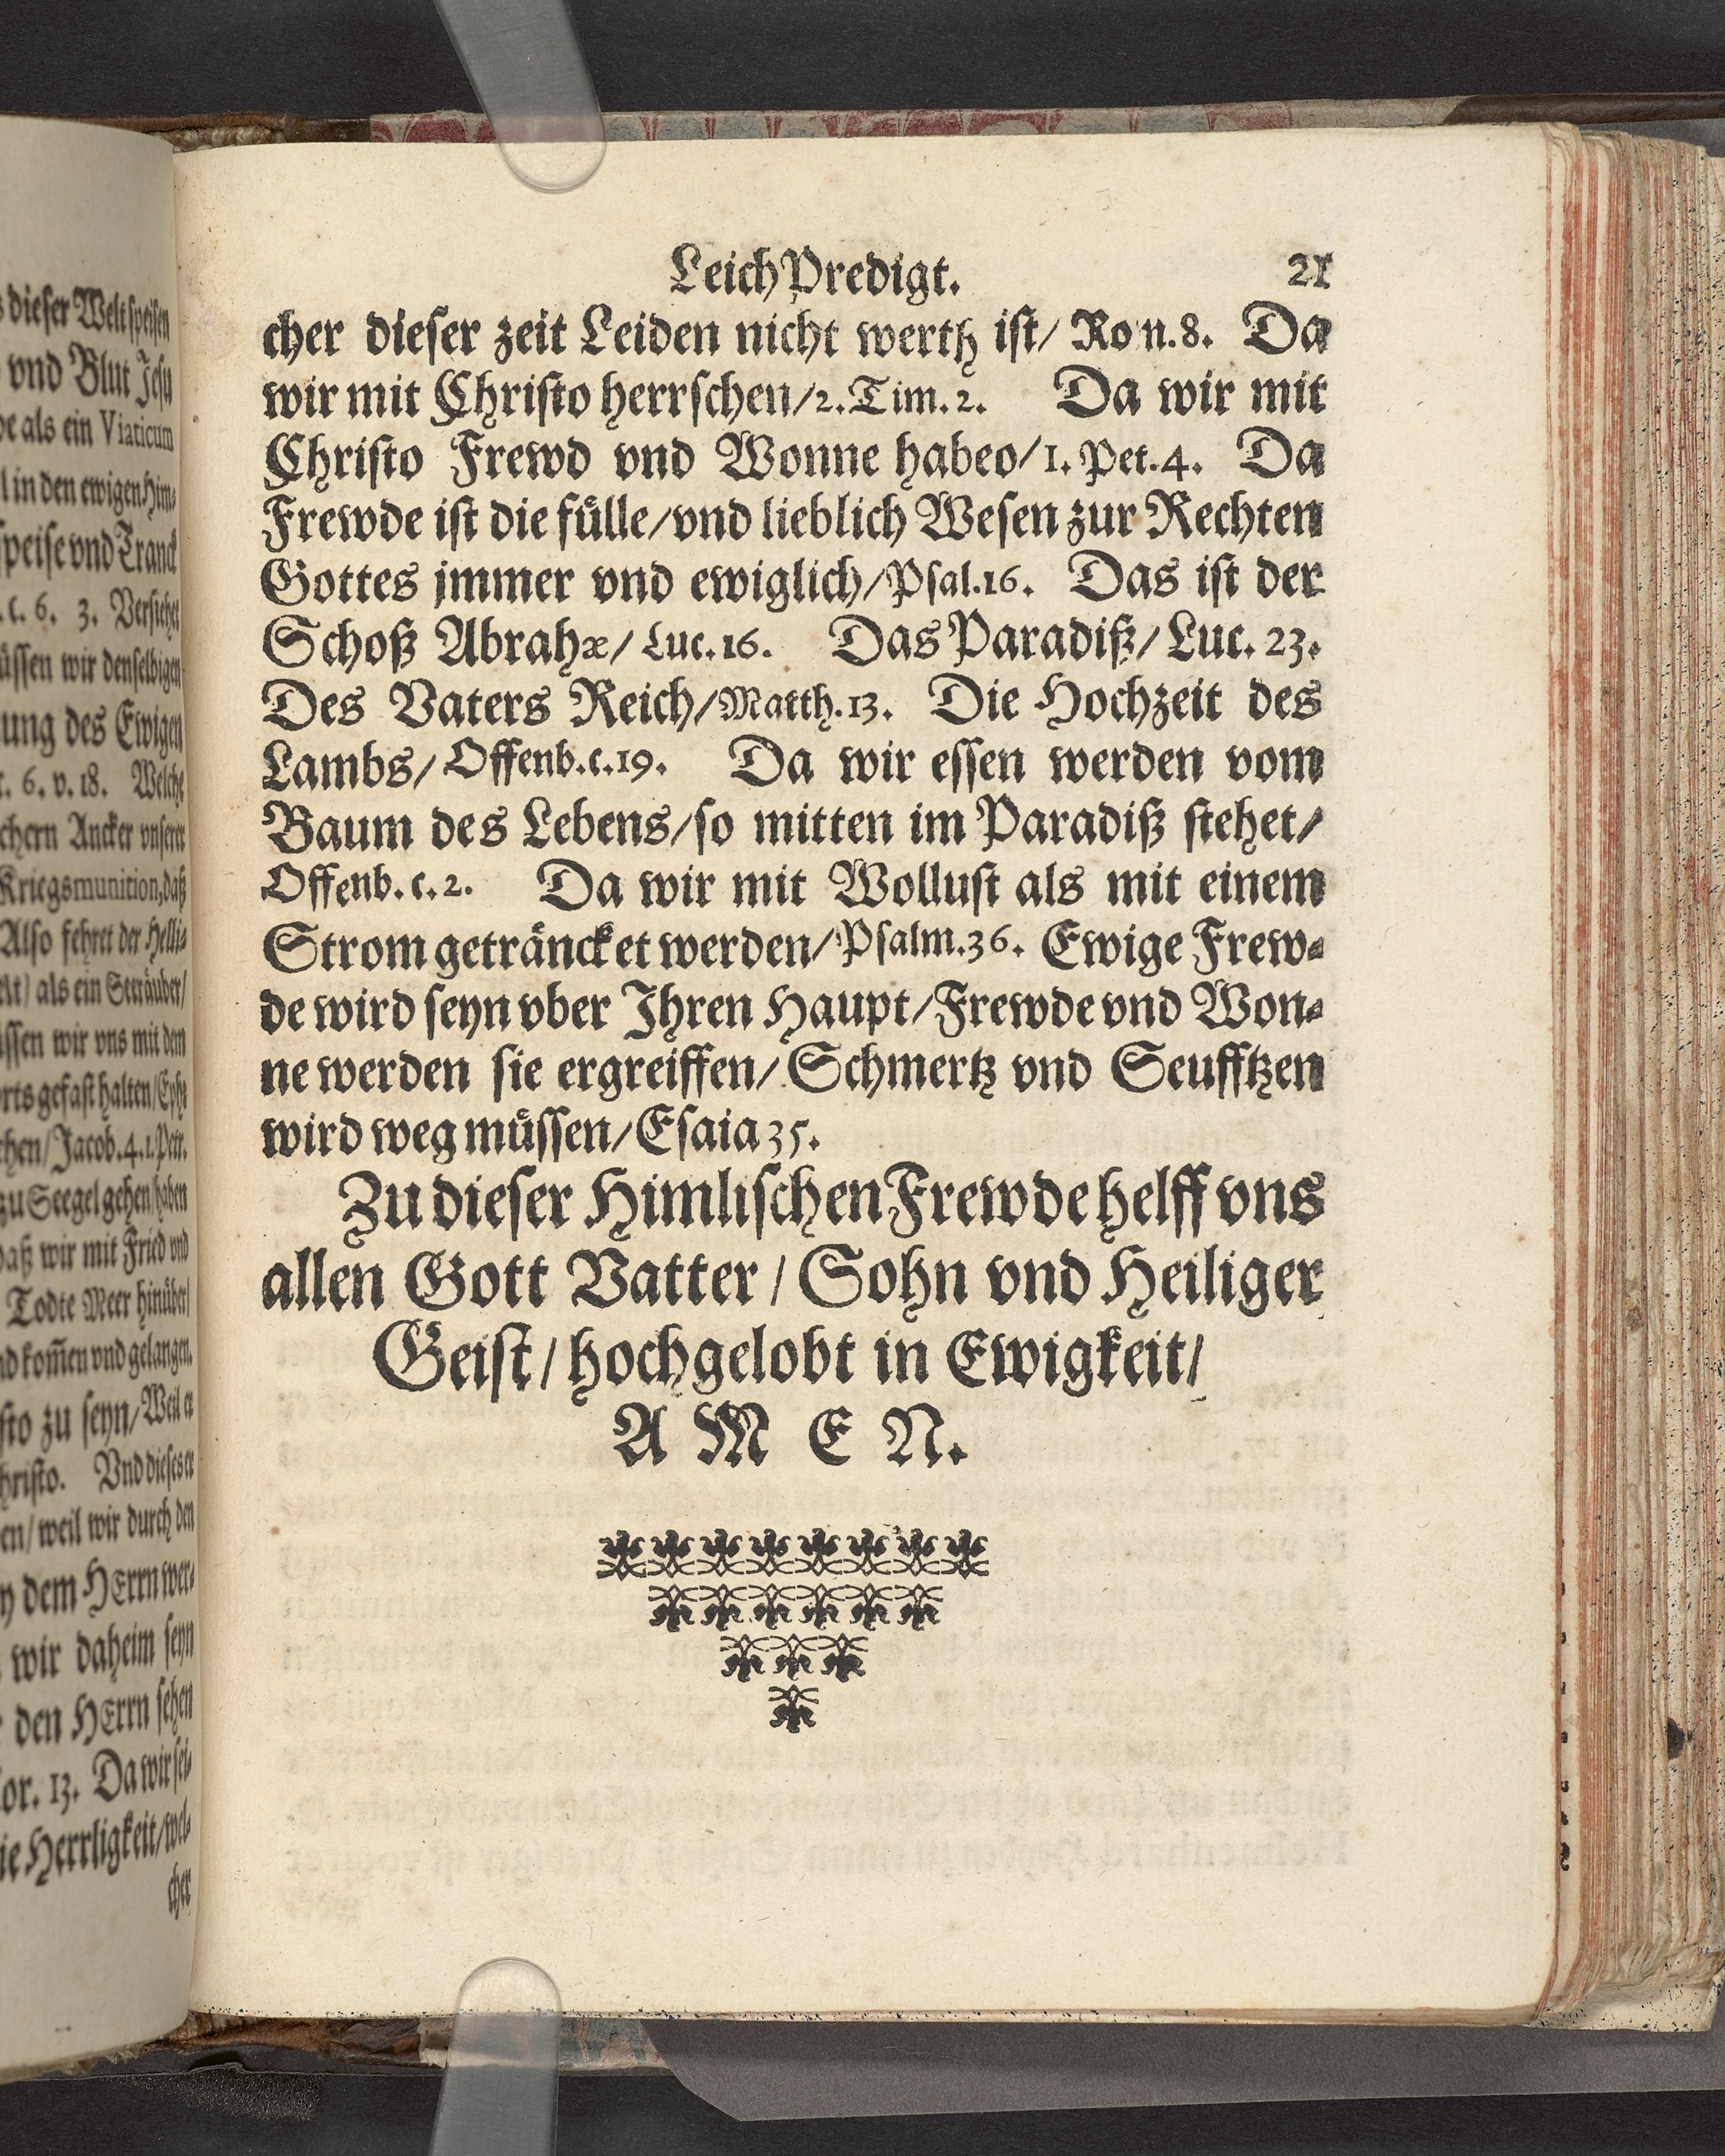 s dieser Welt speisen
vnd Blut Jesu
de als ein Viaticum
l in den ewigen Him-
speise vnd Tranck
c. 6. 3. Versiehet
üssen wir denselbigen
ung des Ewigen
c. 6. v. 18. Welche
chern Ancker vnserer
Kriegsmunition, daß
Also fehret der Helli-
elt) als ein Seeräuber/
üssen wir vns mit dem
orts gefast halten/
chen/ Jacob. 4. 1. Petr.
zu Seegel gehen/ haben
daß wir mit Fried vnd
Todte Meer hinüber/
nd kom̃en vnd gelangen.
sto zu seyn/ Weil er
hristo. Vnd dieses
en/ weil wir durch den
dem HErrn wer-
wir daheim seyn
den HErrn sehen
or. 13. Da wir sei-
ie Herrligkeit/ wel-
cher
LeichPredigt. 21
cher dieser zeit Leiden nicht werth ist/ Ron. 8. Da
wir mit Christo herrschen/ 2. Tim. 2. Da wir mit
Christo Frewd vnd Wonne habeo/ 1. Pet. 4. Da
Frewde ist die fülle/ vnd lieblich Wesen zur Rechten
Gottes jmmer vnd ewiglich/ Psal. 16. Das ist der
Schoß Abrahæ/ Luc. 16. Das Paradiß/ Luc. 23.
Des Vaters Reich/ Matth. 13. Die Hochzeit des
Lambs/ Offenb. c. 19. Da wir essen werden vom
Baum des Lebens/ so mitten im Paradiß stehet/
Offenb. c. 2. Da wir mit Wollust als mit einem
Strom geträncket werden/ Psalm. 36. Ewige Frew-
de wird seyn vber Ihren Haupt/ Frewde vnd Won-
ne werden sie ergreiffen/ Schmertz vnd Seufftzen
wird weg müssen/ Esaia 35.
Zu dieser Himlischen Frewde helff vns
allen Gott Vatter / Sohn vnd Heiliger
Geist / hochgelobt in Ewigkeit /
A M E N.